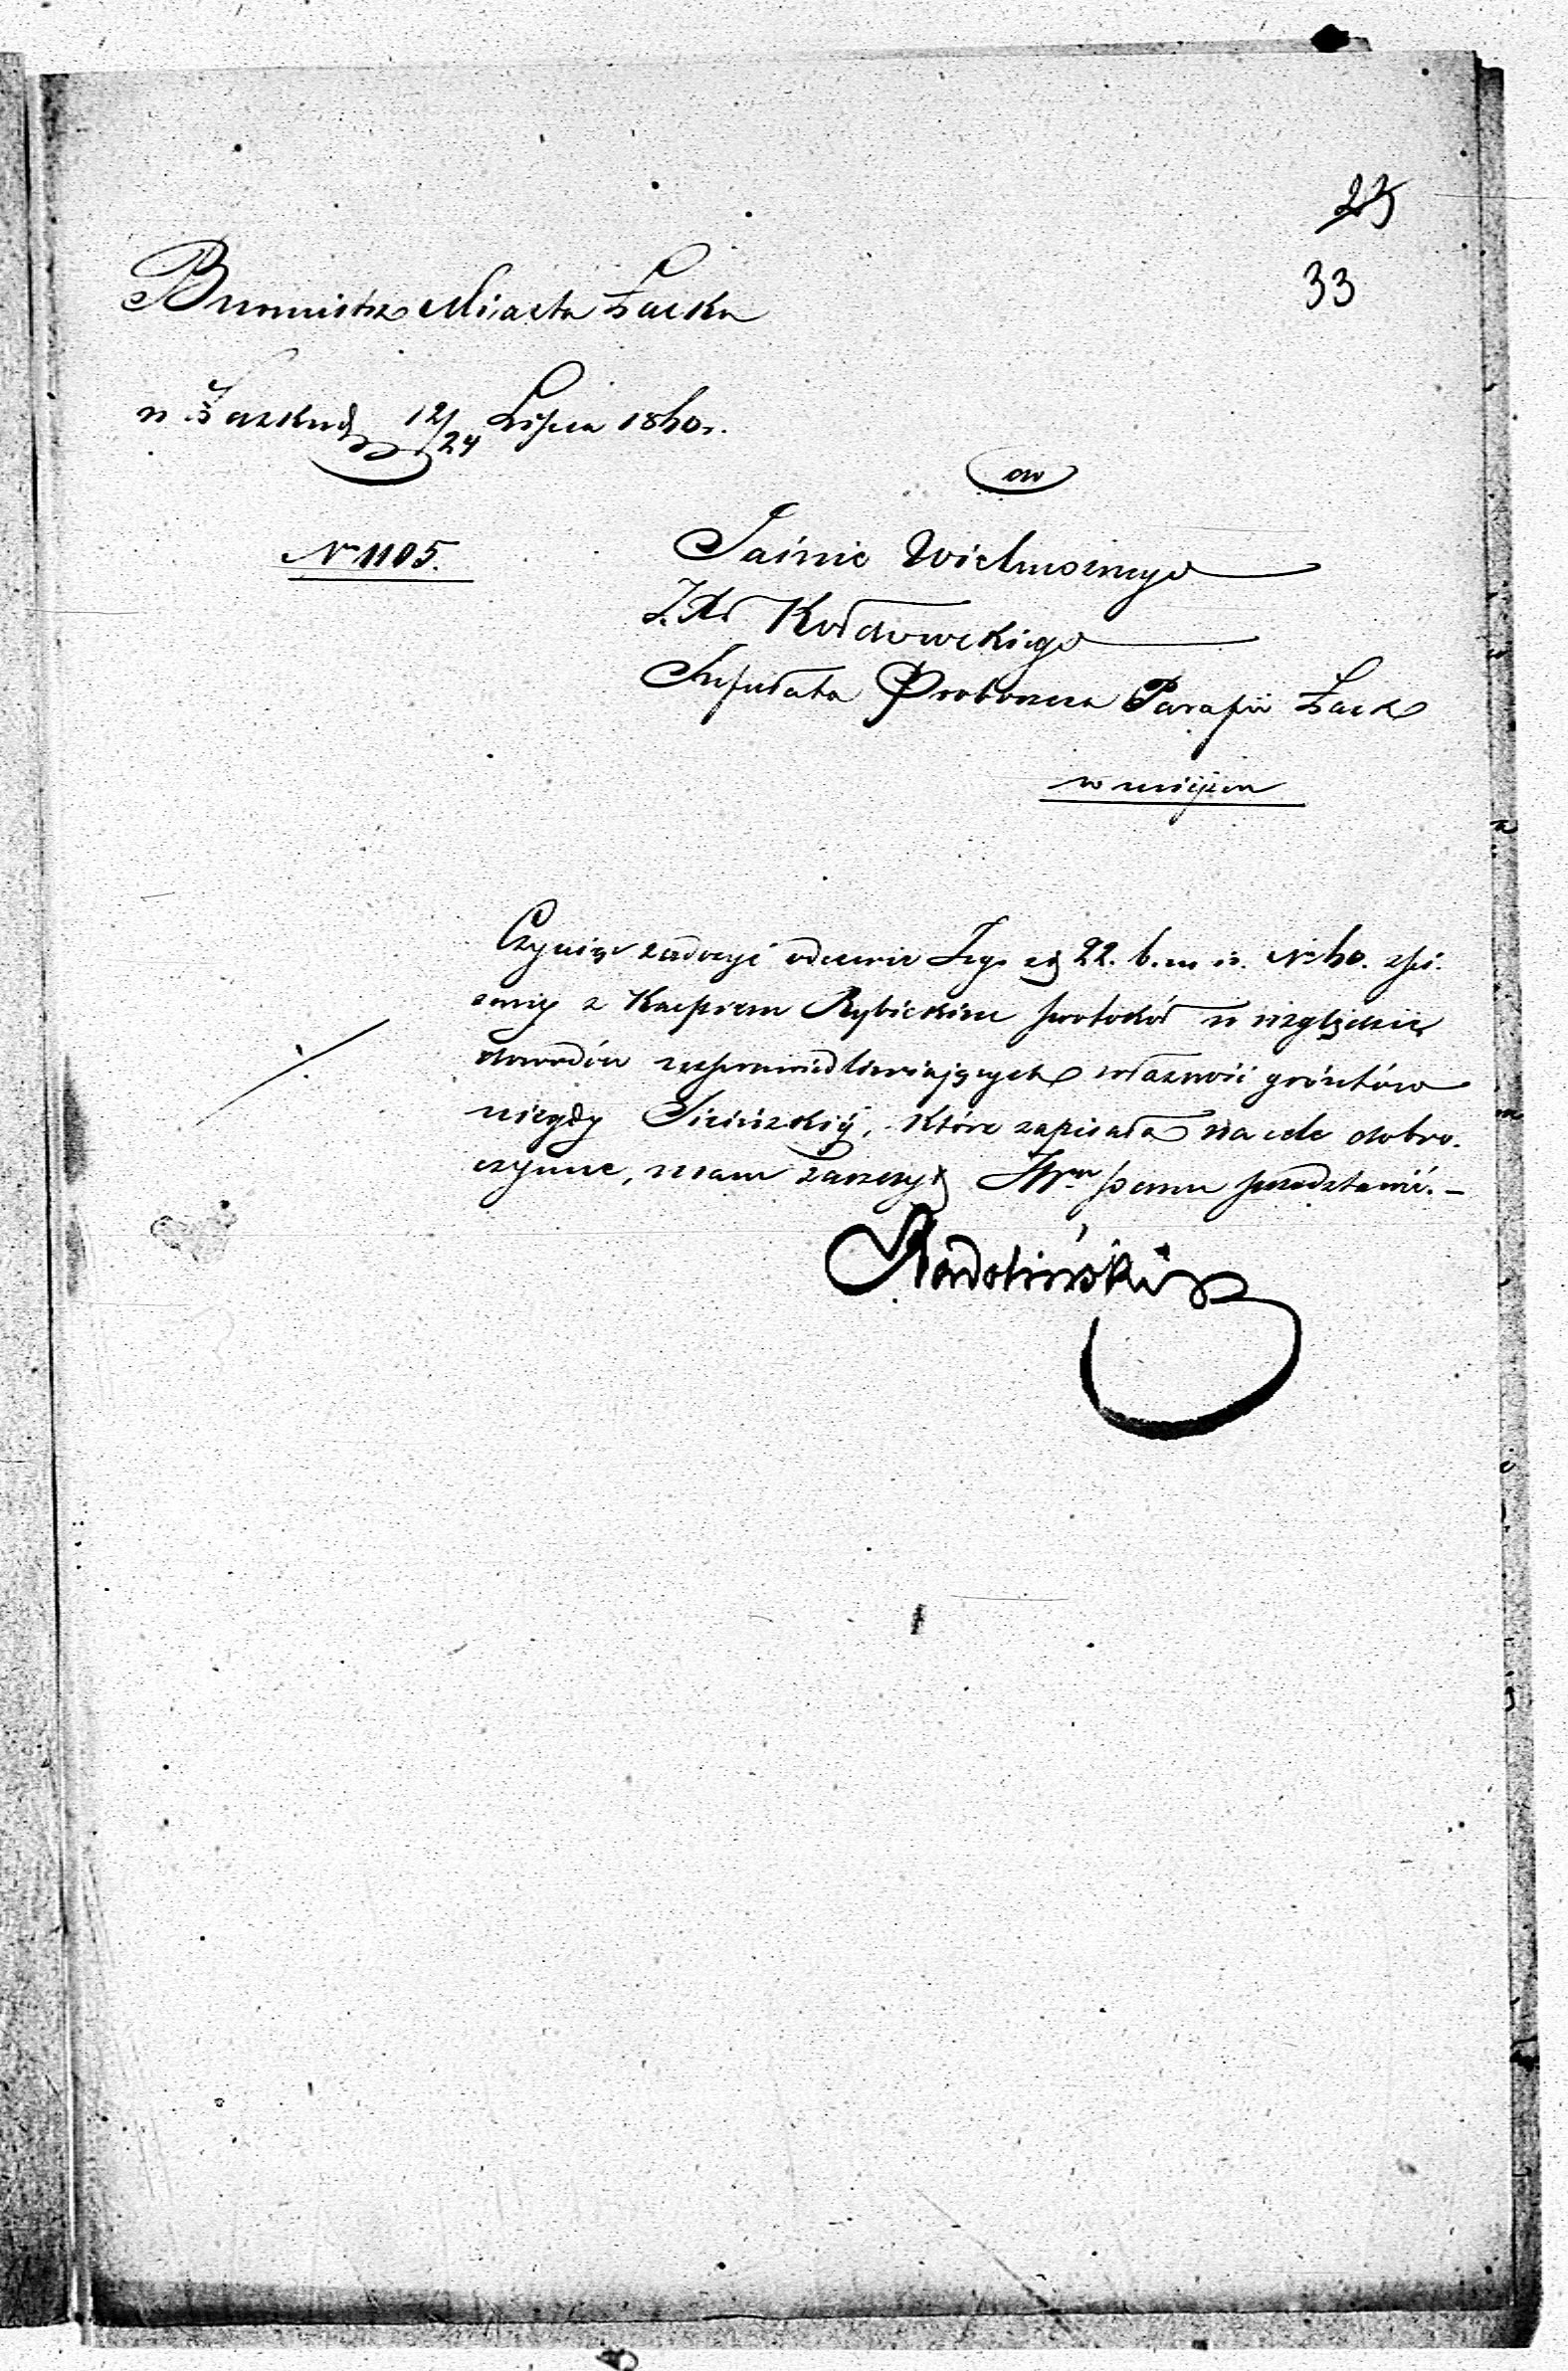 23
33
Burmistrz Miasta Łaska
w Łasku d. 12/24 Lipca 1860 r.
Do
No 1105.
Jaśnie Wielmożnego
J. Xd Kozłowskiego
Infułata Proboszcza Parafii Łask
w miejscu
Czyniąc zadosyć odezwie Jego z d. 22. b. m. i r. No 60. spi-
sany z Kacprem Rybickim protokół w względzie
dowodów usprawiedliwiających własność gróntów
niegdy które zapisała na cele dobro-
czynne, mam zaszczyt JWmu panu przedstawić. –
Radoliński